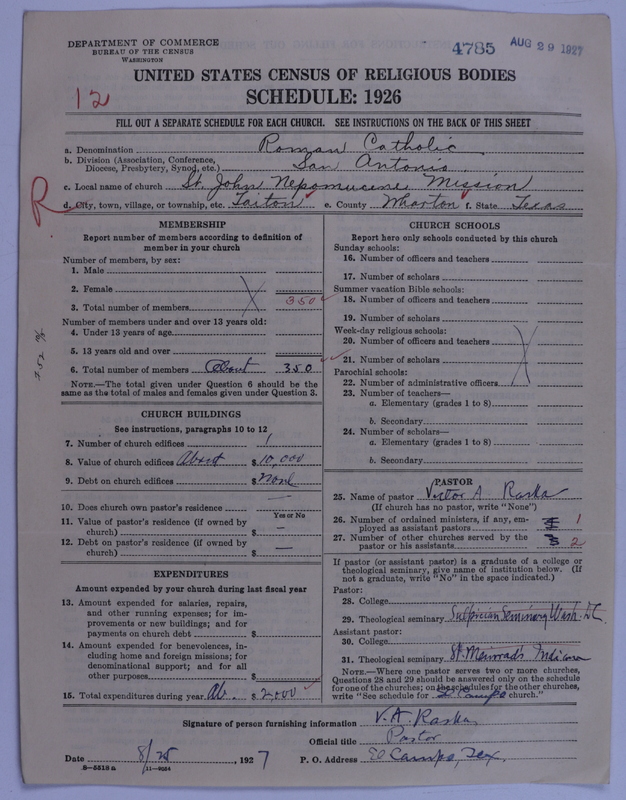 DEPARTMENT OF COMMERCE
BUREAU OF THE CENSUS
WASHINGTON
4785 AUG 29 1927
UNITED STATES CENSUS OF RELIGIOUS BODIES
12
SCHEDULE: 1926
FILL OUT A SEPARATE SCHEDULE FOR EACH CHURCH. SEE INSTRUCTIONS ON THE BACK OF THIS SHEET
a. Denomination Roman Catholic
b. Division (Association, Conference, Diocese, Presbytery, Synod, etc.) San Antonio
c. Local name of church St. John Nepomucene Mission
R
d. City, town, village, or township, etc. Taiton e. County Wharton f. State Texas
MEMBERSHIP
Report number of members according to definition of
member in your church
Number of members, by sex:
1. Male
2. Female
3. Total number of members 350
Number of members under and over 13 years old:
4. Under 13 years of age
5. 13 years old and over
6. Total number of members About 350
NOTE.—The total given under Question 6 should be the
same as the total of males and females given under Question 3.
CHURCH BUILDINGS
See instructions, paragraphs 10 to 12
7. Number of church edifices 1
8. Value of church edifices About $10,000
9. Debt on church edifices $None
10. Does church own pastor's residence? —
Yes or No
11. Value of pastor's residence (if owned by
church) $ —
12. Debt on pastor's residence (if owned by
church) $ —
EXPENDITURES
Amount expended by your church during last fiscal year
13. Amount expended for salaries, repairs,
and other running expenses; for im-
provements or new buildings; and for
payments on church debt $
14. Amount expended for benevolences, in-
cluding home and foreign missions; for
denominational support; and for all
other purposes $
15. Total expenditures during year Ab. $2000
CHURCH SCHOOLS
Report here only schools conducted by this church
Sunday schools:
16. Number of officers and teachers
17. Number of scholars
Summer vacation Bible schools:
18. Number of officers and teachers
19. Number of scholars
Week-day religious schools:
20. Number of officers and teachers
21. Number of scholars
Parochial schools:
22. Number of administrative officers
23. Number of teachers—
a. Elementary (grades 1 to 8)
b. Secondary
24. Number of scholars—
a. Elementary (grades 1 to 8)
b. Secondary
PASTOR
25. Name of pastor Victor A. Raska
(If church has no pastor, write "None")
26. Number of ordained ministers, if any, em-
ployed as assistant pastors 1
27. Number of other churches served by the
pastor or his assistants 3 2
If pastor (or assistant pastor) is a graduate of a college or
theological seminary, give name of institution below. (If
not a graduate, write "No" in the space indicated.)
Pastor:
28. College
29. Theological seminary Sulpician Seminary Wash. D.C.
Assistant pastor:
30. College
31. Theological seminary St. Meinrad's Indiana
NOTE.—Where one pastor serves two or more churches,
Questions 28 and 29 should be answered only on the schedule
for one of the churches; on the schedules for the other churches,
write "See schedule for El Campo church."
Signature of person furnishing information V. A. Raska
Official title Pastor
Date 8/25, 1927 P. O. Address El Campo, Tex.
8—5518a 11—9024